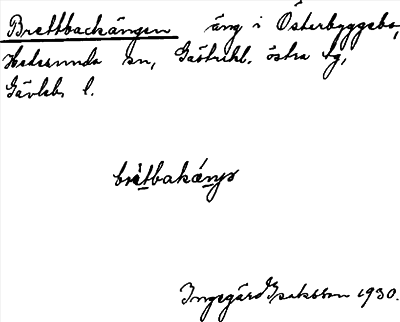 Brettbackängen äng i Österbyggebo,
Hedesunda sn, Gästrikl. östra tg,
Gävleb. l.
brètbakáŋə
Ingegärd Isaksson 1930.